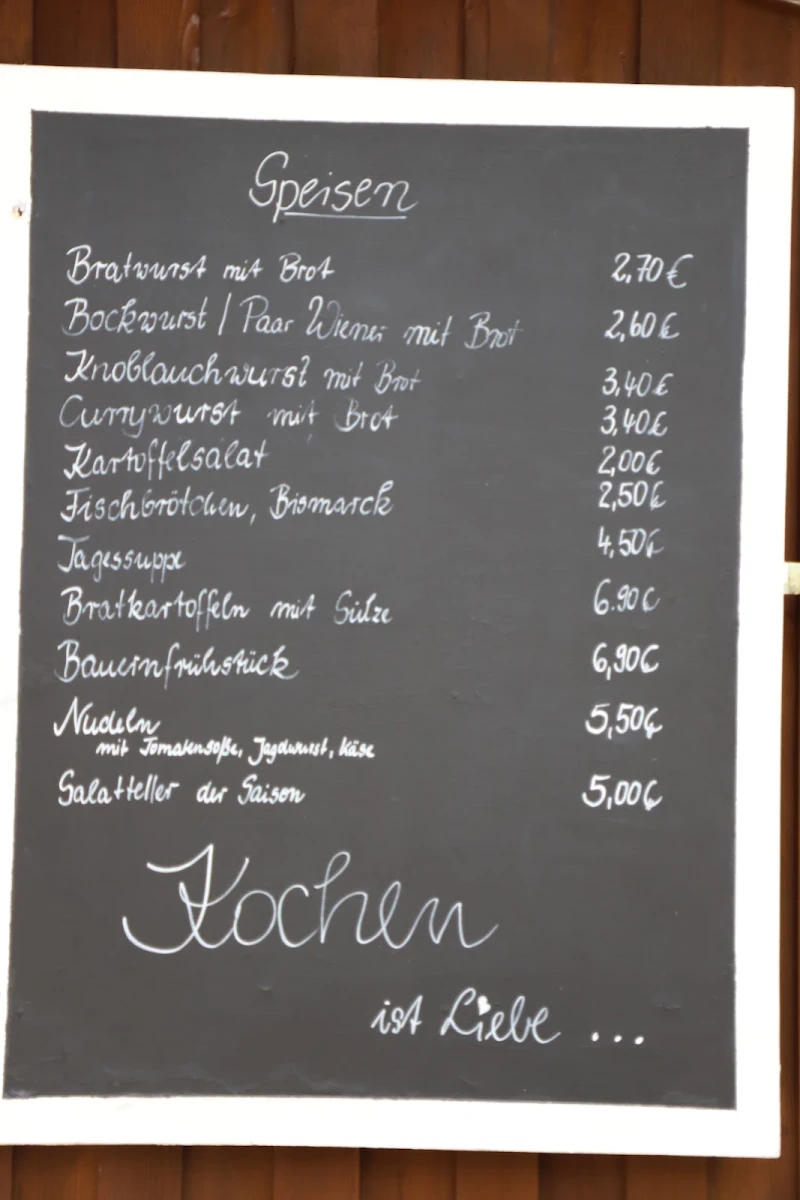 Speisen
Bratwurst mit Brot 2,70€
Bockwurst / Paar Wiener mit Brot 2,60€
Knoblauchwurst mit Brot 3,40€
Currywurst mit Brot 3,40€
Kartoffelsalat 2,00€
Fischbrötchen, Bismarck 2,50€
Tagessuppe 4,50€
Bratkartoffeln mit Sülze 6.90€
Bauernfrühstück 6,90€
Nudeln 5,50€
mit Tomatensoße, Jagdwurst, Käse
Salatteller der Saison 5,00€
Kochen
ist Liebe ...